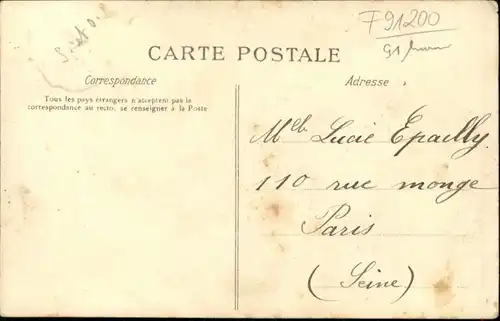 F 91200
CARTE POSTALE
Correspondance
Adresse
Tous les pays étrangers n'acceptent pas la
correspondance au recto, se renseigner à la Poste
Melle Lucie Epailly
110 rue monge
Paris
(Seine)